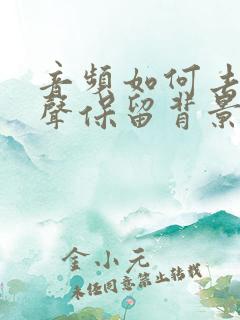 音頻如何去
聲保留背景
金小元
未经同意禁止转载